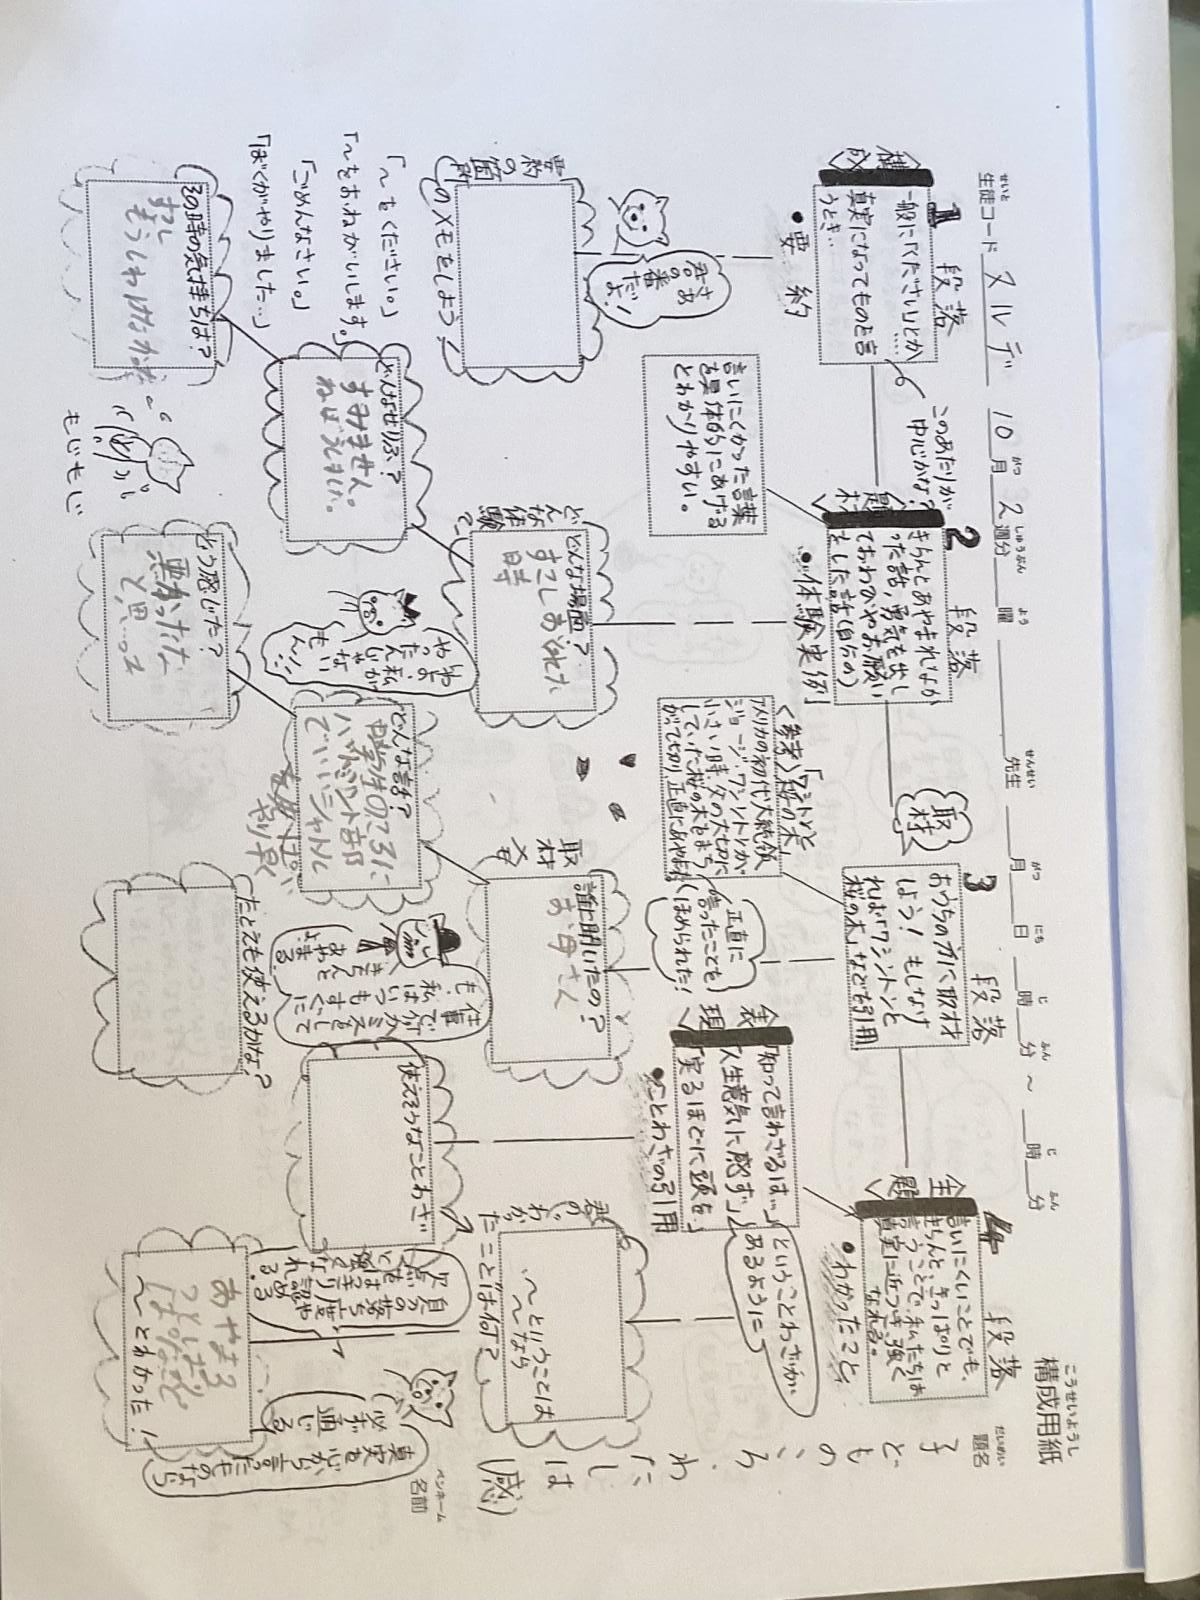 構成用紙
こうせいようし
生徒コード ヌルデ 10月2週分 曜 先生 月 日 時 分 〜 時 分
題名
子どものころ、わたしは(感)
ペンネーム
名前
1 段落
構成
一般に「ください」とか…
真実になってもの を言
うとき…
このあたりが
中心かな?
・要約
さあ
君の
番
だよ!
要約の箇所
のメモをしよう!
「〜をください。」
「〜をおねがいします。」
「ごめんなさい。」
「ぼくがやりました…」
2 段落
題材
きちんとあやまれなか
った話、勇気を出し
ておわびやお願い
をした話(自分の)
・体験実例
言いにくかった言葉
を具体的にあげる
とわかりやすい。
どんな体験?
どんな場面?
すこしおくれた
時
どんなせりふ?
すみません。
ねぼうしました。
その時の気持ちは?
すこし
もうしわけなかった
もじもじ
取材
3 段落
おうちの方に取材
しよう! もしなけ
れば「ワシントンと
桜の木」なども引用
<参考>「ワシントンと
桜の木」
アメリカの初代大統領
ジョージ・ワシントンが
小さい時、父の大切に
していた桜の木をまち
がって切り、正直にあやまった
正直に
言ったことを
ほめられた!
取材
誰に聞いたの?
お母さん
どんな話?
中学生のころに
バドミントン部
で
どう感じた?
と思った
たとえも使えるかな?
仕事で何かミスをして
も、私はいつもすぐに
きちんと
あやまる。
表現
「知って言わざるは…」
「人生意気に感ず」
「実るほどに頭を」
・ことわざの引用
ということわざが
あるように
使えそうなことわざ
4 段落
主題
言いにくいことでも、
きちんと、きっぱりと
言うことで、私たちは
真実に近づき、強く
なれる。
・わかったこと
君のわかったことは何?
〜ということは
〜なら
自分の落ち度や
欠点をはっきり認める
と強くなれる。
あやまる
ことは
〜とわかった!
真実を心から言ったものなら
必ず通じる